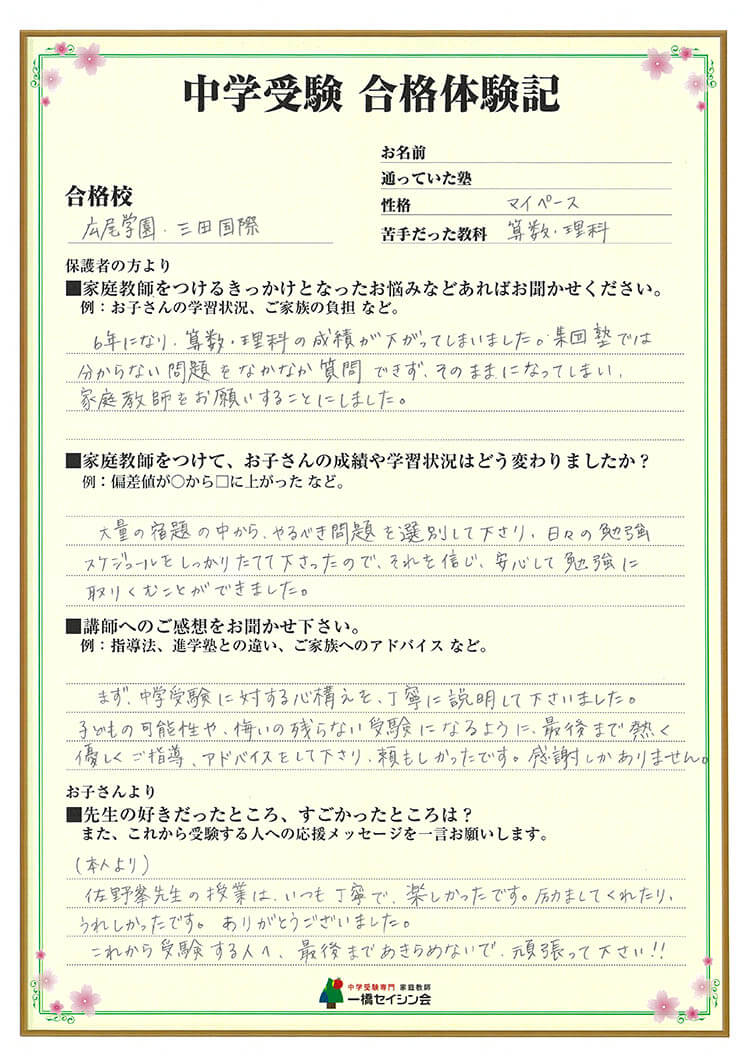 中学受験 合格体験記
お名前
通っていた塾
合格校
性格 マイペース
広尾学園・三田国際
苦手だった教科 算数・理科
保護者の方より
■家庭教師をつけるきっかけとなったお悩みなどあればお聞かせください。
例：お子さんの学習状況、ご家族の負担 など。
6年になり、算数・理科の成績が下がってしまいました。集団塾では
分からない問題をなかなか質問できず、そのままになってしまい、
家庭教師をお願いすることにしました。
■家庭教師をつけて、お子さんの成績や学習状況はどう変わりましたか？
例：偏差値が〇から□に上がった など。
大量の宿題の中から、やるべき問題を選別して下さり、日々の勉強
スケジュールをしっかりたてて下さったので、それを信じ、安心して勉強に
取りくむことができました。
■講師へのご感想をお聞かせ下さい。
例：指導法、進学塾との違い、ご家族へのアドバイス など。
まず、中学受験に対する心構えを、丁寧に説明して下さいました。
子どもの可能性や、悔いの残らない受験になるように、最後まで熱く
優しくご指導、アドバイスをして下さり、頼もしかったです。感謝しかありません。
お子さんより
■先生の好きだったところ、すごかったところは？
また、これから受験する人への応援メッセージを一言お願いします。
(本人より)
佐野峯先生の授業は、いつも丁寧で、楽しかったです。励ましてくれたり、
うれしかったです。ありがとうございました。
これから受験する人へ、最後まであきらめないで、頑張って下さい!!
中学受験専門 家庭教師
一橋セイシン会